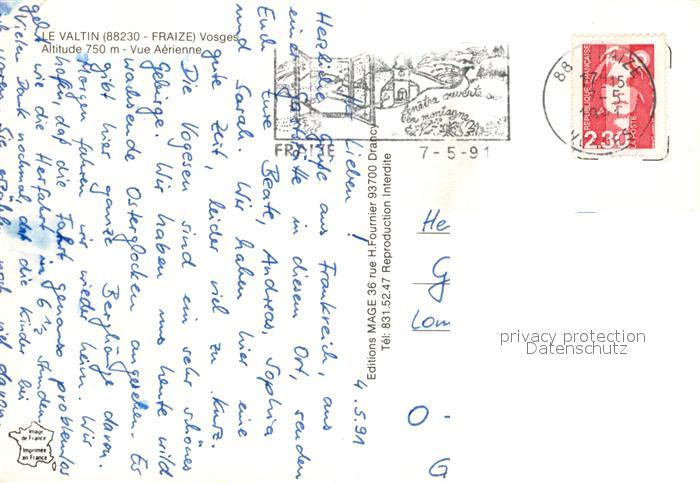 LE VALTIN (88230 - FRAIZE) Vosges
Altitude 750 m - Vue Aérienne
4.5.91
Ihr Lieben!
Herzliche Grüße aus Frankreich, aus
einer Gaststätte in diesem Ort, senden
Euch Eure Beate, Andreas, Sophia
und Sarah. Wir haben hier eine
gute Zeit, leider viel zu kurz.
Die Vogesen sind ein sehr schönes
Gebirge. Wir haben uns heute wild
wachsende Osterglocken angesehen. Es
gibt hier ganze Berghänge davon.
Morgen fahren wir wieder heim. Wir
hoffen, daß die Fahrt genauso problemlos
geht wie die Herfahrt in 6 1/2 Stunden.
Vielen Dank nochmal, daß die Kinder bei
Editions MAGE 36 rue H.Fournier 93700 Drancy
Tél: 831.52.47 Reproduction Interdite
fenêtre ouverte
FRAIZE
7-5-91
88
FRAIZE
RÉPUBLIQUE FRANÇAISE
2.30
LA POSTE
He
Gy
Lom
O
G
privacy protection
Datenschutz
Image
de France
Imprimée
en France